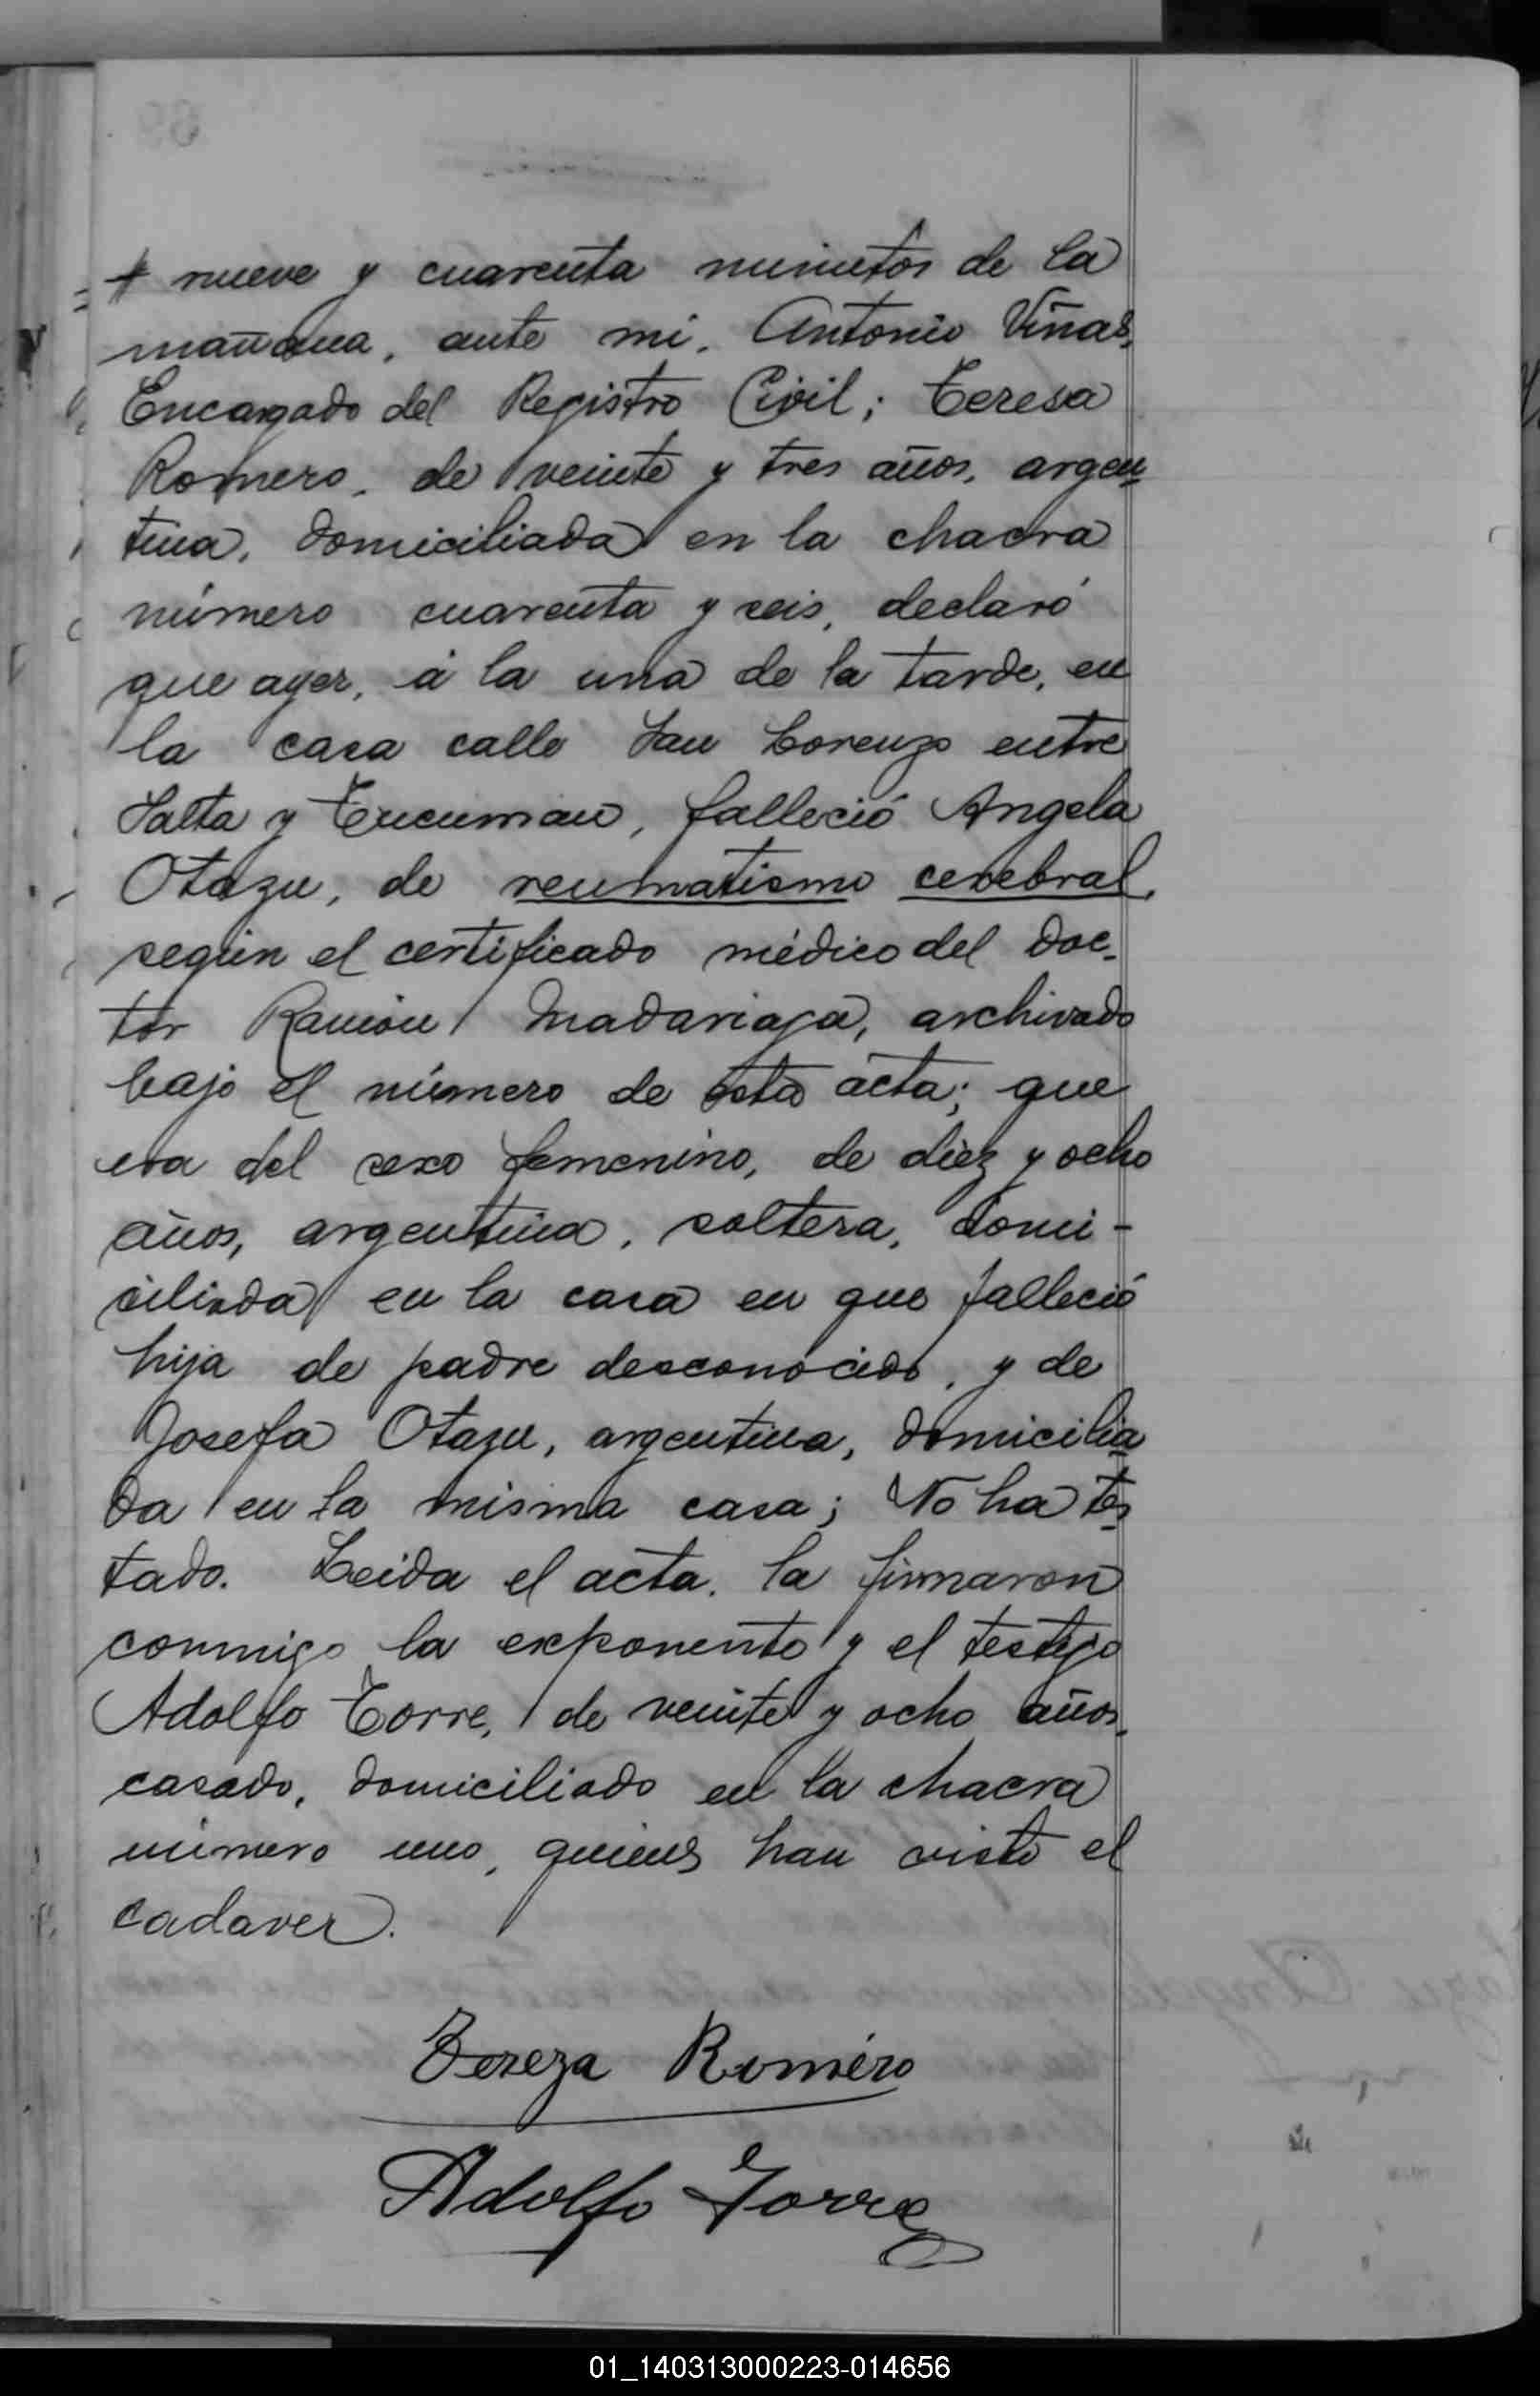 nueve y cuarenta minutos de la
mañana, ante mi, Antonio Viñas,
Encargado del Registro Civil; Teresa
Romero, de veinte y tres años, argen-
tina, domiciliada en la chacra
número cuarenta y seis, declaró
que ayer, á la una de la tarde, en
la casa calle San Lorenzo entre
Salta y Tucuman, falleció Angela
Otazu, de reumatismo cerebral,
según el certificado médico del doc-
tor Ramón Madariaga, archivado
bajo el número de esta acta; que
era del sexo femenino, de diez y ocho
años, argentina, soltera, domi-
ciliada en la casa en que falleció
hija de padre desconocido, y de
Josefa Otazu, argentina, domicilia-
da en la misma casa; No ha tes-
tado. Leida el acta, la firmaron
conmigo la exponente y el testigo
Adolfo Torre, de veinte y ocho años,
casado, domiciliado en la chacra
número uno, quienes han visto el
cadaver.
Tereza Roméro
Adolfo Torre
01_140313000223-014656